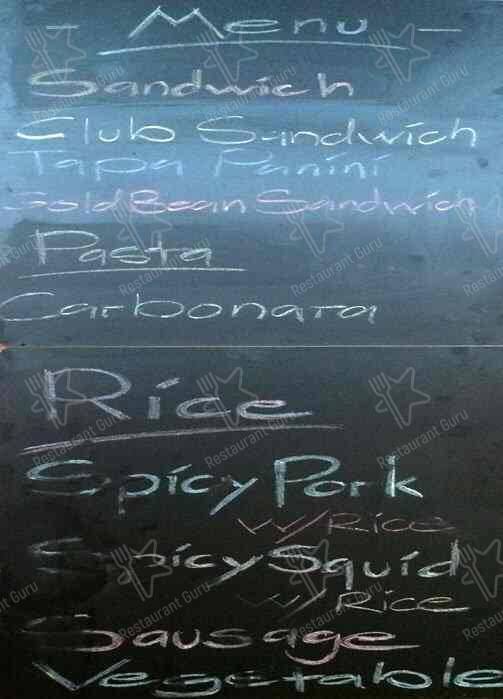 - Menu -
Sandwich
Club Sandwich
Tapa Panini
Gold Bean Sandwich
Pasta
Carbonara
Rice
Spicy Pork
w/Rice
Spicy Squid
w/ Rice
Sausage
Vegetable
Restaurant Guru